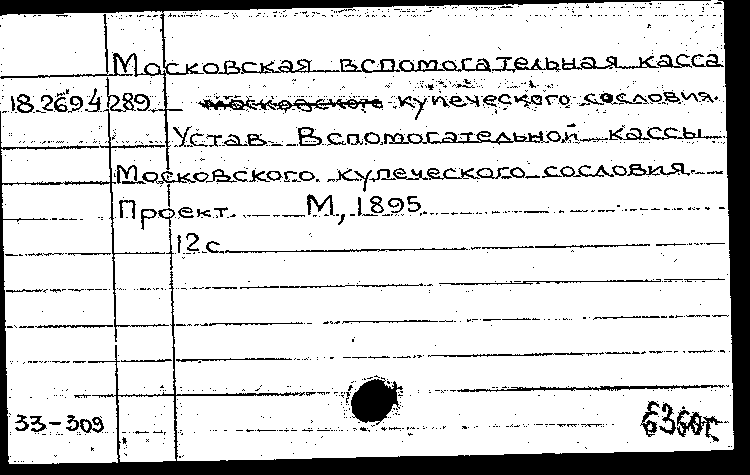 Московская вспомогательная касса
18.269 4/289 купеческого сословия.
Устав Вспомогательной кассы
Московского купеческого сословия.
Проект. М, 1895
12 с.
33-309